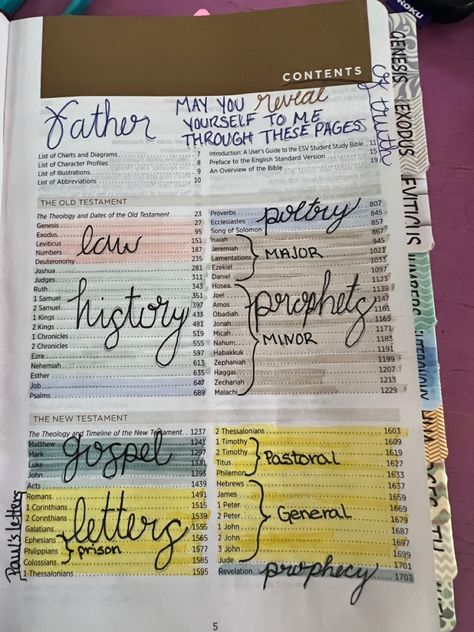 CONTENTS
Father MAY YOU reveal
YOURSELF TO ME
THROUGH THESE PAGES
of truth
List of Charts and Diagrams 7
List of Character Profiles 8
List of Illustrations 9
List of Abbreviations 10
Introduction: A User's Guide to the ESV Student Study Bible 11
Preface to the English Standard Version 15
An Overview of the Bible 19
THE OLD TESTAMENT
The Theology and Dates of the Old Testament 23
Genesis 27
Exodus 95
Leviticus 151
Numbers 187
Deuteronomy 235
law
Joshua 281
Judges 311
Ruth 343
1 Samuel 351
2 Samuel 397
1 Kings 433
2 Kings 481
1 Chronicles 519
2 Chronicles 555
Ezra 597
Nehemiah 613
Esther 635
history
Job 647
Psalms 689
Proverbs 807
Ecclesiastes 845
Song of Solomon 857
poltry
Isaiah 867
Jeremiah 945
Lamentations 1021
Ezekiel 1033
Daniel 1097
MAJOR
Hosea 1123
Joel 1139
Amos 1147
Obadiah 1161
Jonah 1165
Micah 1171
Nahum 1183
Habakkuk 1191
Zephaniah 1199
Haggai 1207
Zechariah 1213
Malachi 1229
prophets
MINOR
THE NEW TESTAMENT
The Theology and Timeline of the New Testament 1237
Matthew 1241
Mark 1297
Luke
John
gospel
Acts 1439
Romans 1491
1 Corinthians 1515
2 Corinthians 1539
Galatians 1555
Ephesians 1565
Philippians 1577
Colossians 1585
1 Thessalonians 1595
letters
prison
Paul's letters
2 Thessalonians 1603
1 Timothy 1609
2 Timothy 1619
Titus 1627
Philemon 1633
Pastoral
Hebrews 1637
James
1 Peter
2 Peter 1669
1 John 1679
2 John 1687
3 John 1697
Jude 1699
General
Revelation 1707
prophecy
5
GENESIS
EXODUS
LEVITICUS
NUMBERS
ROKU